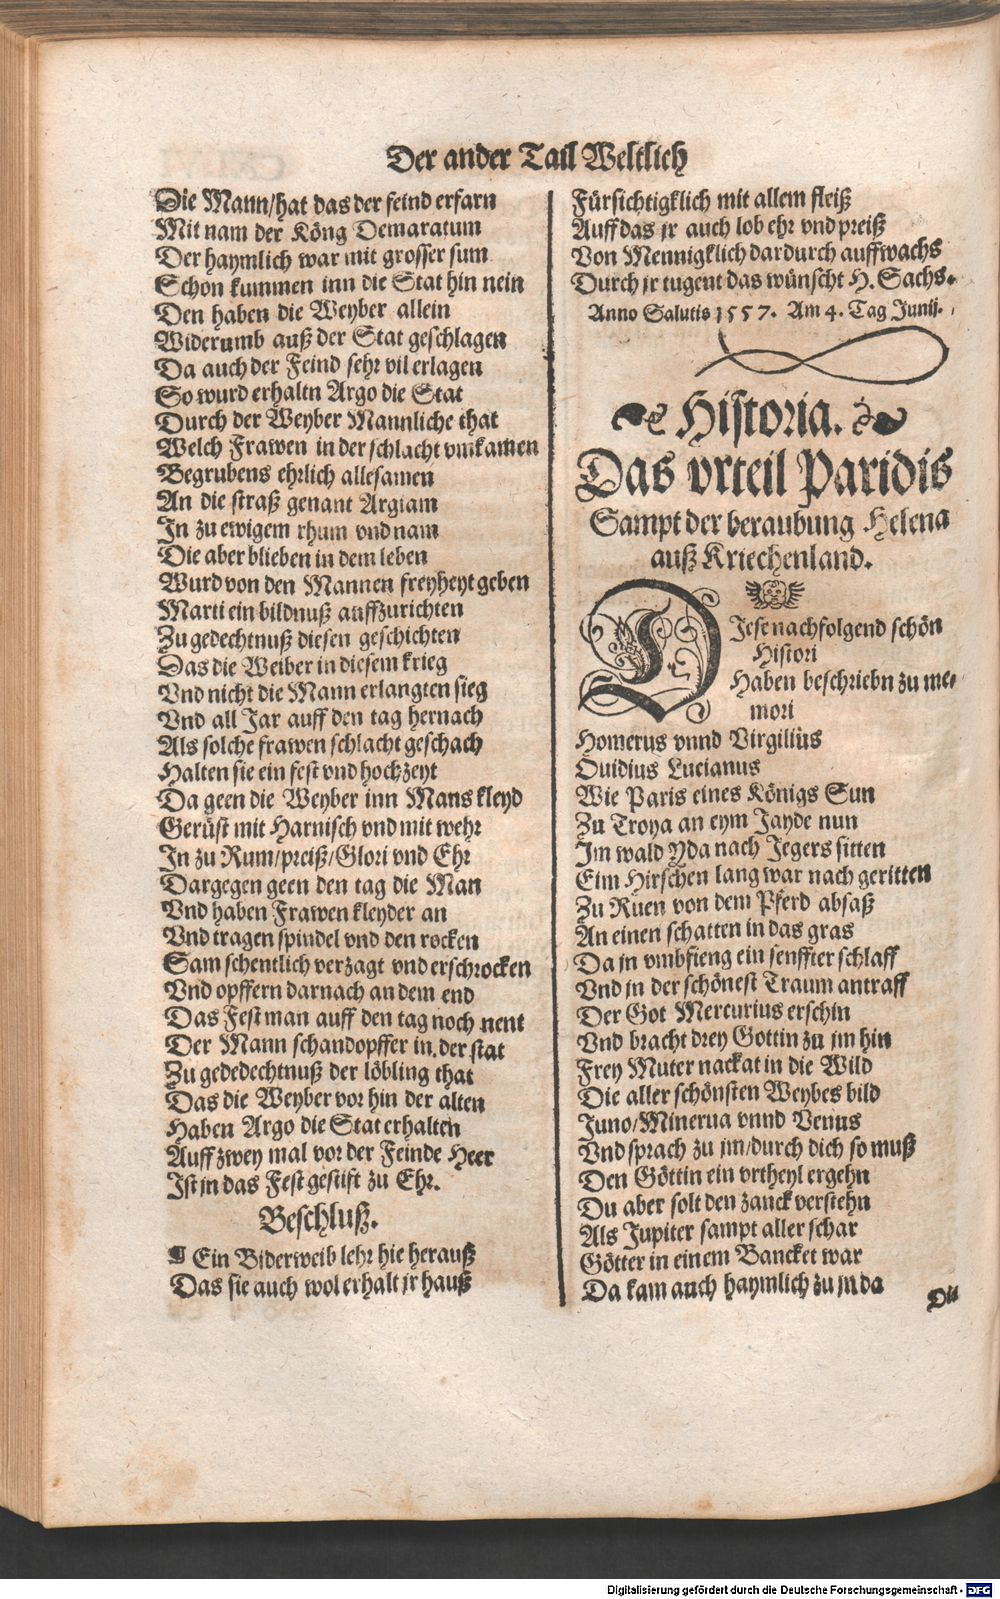 Der ander Tail Weltlich
Die Mann/hat das der feind erfarn
Mit nam der Köng Demaratum
Der haymlich war mit grosser sum
Schon kummen inn die Stat hin nein
Den haben die Weyber allein
Widerumb auß der Stat geschlagen
Da auch der Feind sehr vil erlagen
So wurd erhaltn Argo die Stat
Durch der Weyber Mannliche that
Welch Frawen in der schlacht vmkamen
Begrubens ehrlich allesamen
An die straß genant Argiam
In zu ewigem rhum vnd nam
Die aber blieben in dem leben
Wurd von den Mannen freyheyt geben
Marti ein bildnuß auffzurichten
Zu gedechtnuß diesen geschichten
Das die Weiber in diesem krieg
Vnd nicht die Mann erlangten sieg
Vnd all Jar auff den tag hernach
Als solche frawen schlacht geschach
Halten sie ein fest vnd hochzeyt
Da geen die Weyber inn Mans kleyd
Gerüst mit Harnisch vnd mit wehr
In zu Rum/preiß/Glori vnd Ehr
Dargegen geen den tag die Man
Vnd haben Frawen kleyder an
Vnd tragen spindel vnd den rocken
Sam schentlich verzagt vnd erschrocken
Vnd opffern darnach an dem end
Das Fest man auff den tag noch nent
Der Mann schandopffer in der stat
Zu gededechtnuß der löbling that
Das die Weyber vor hin der alten
Haben Argo die Stat erhalten
Auff zwey mal vor der Feinde Heer
Ist jn das Fest gestift zu Ehr.
Beschluß.
¶ Ein Biderweib lehr hie herauß
Das sie auch wol erhalt jr hauß
Fürsichtigklich mit allem fleiß
Auff das jr auch lob ehr vnd preiß
Von Mennigklich dardurch auffwachs
Durch jr tugent das wünscht H. Sachs.
Anno Salutis 1557. Am 4. Tag Junij.
Historia.
Das vrteil Paridis
Sampt der beraubung Helena
auß Kriechenland.
DIese nachfolgend schön
Histori
Haben beschriebn zu me-
mori
Homerus vnnd Virgilius
Ouidius Lucianus
Wie Paris eines Königs Sun
Zu Troya an eym Jayde nun
Im wald Yda nach Jegers sitten
Eim Hirschen lang war nach geritten
Zu Ruen von dem Pferd absaß
An einen schatten in das gras
Da jn vmbfieng ein senffter schlaff
Vnd jn der schönest Traum antraff
Der Got Mercurius erschin
Vnd bracht drey Gottin zu jm hin
Frey Muter nackat in die Wild
Die aller schönsten Weybes bild
Juno/Minerua vnnd Venus
Vnd sprach zu jm/durch dich so muß
Den Göttin ein vrtheyl ergehn
Du aber solt den zanck verstehn
Als Jupiter sampt aller schar
Götter in einem Bancket war
Da kam auch haymlich zu jn da
Die
Digitalisierung gefördert durch die Deutsche Forschungsgemeinschaft - DFG